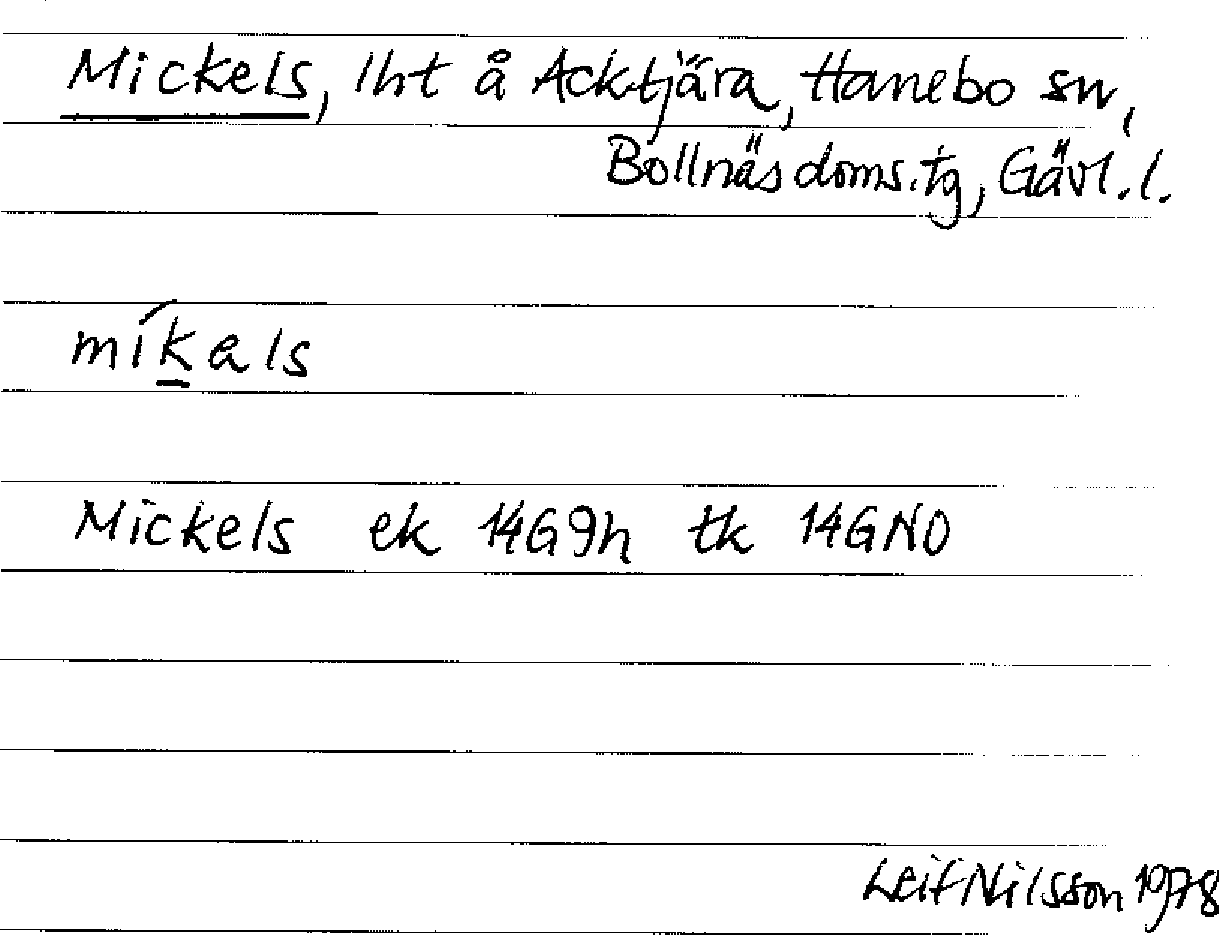 Mickels, lht å Acktjära, Hanebo sn,
Bollnäs doms.tg, Gävl.l.
míkals
Mickels ek 14G9h tk 14GNO
Leif Nilsson 1978